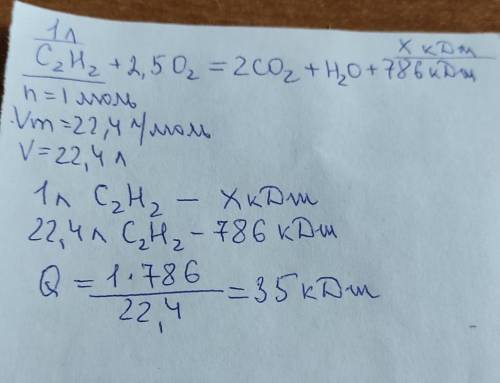 1л х кДж
C₂H₂ + 2,5O₂ = 2CO₂ + H₂O + 786 кДж
n = 1 моль
Vm = 22,4 л/моль
V = 22,4 л
1л C₂H₂ — х кДж
22,4 л C₂H₂ – 786 кДж
Q = 1·786 / 22,4 = 35 кДж